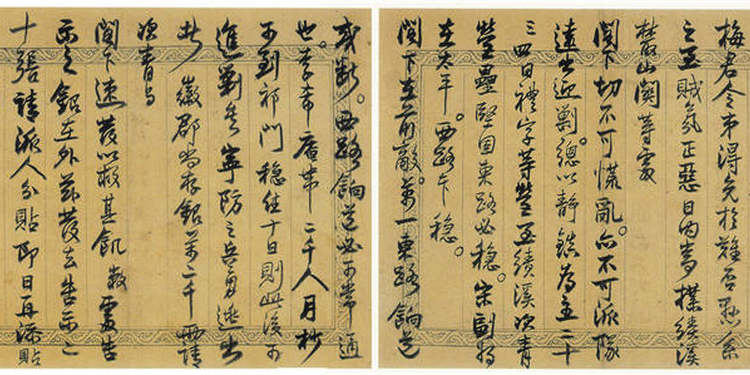 梅君令弟得免於難否懸系
之至賊氛正惡日內青撲績溪
山關等處
閣下切不可慌亂。亦不可派隊
遠出迎剿。總以靜鎮為主二十
三四日禮字等營至績溪
營壘堅固東路必穩。宋副將
在太平。西路亦穩。
閣下在前敵。萬一東路餉道
或斷。西路餉道必可常通
也。李希庵帶二千人月杪
可到祁門穩住十日則此後可
進剿矣寧防之兵勇逃出
徽郡尚存銀萬二千兩請
青與
閣下速發以救其飢敝處告
示之銀在外茲發去告示二
十張請派人分貼即日再添貼